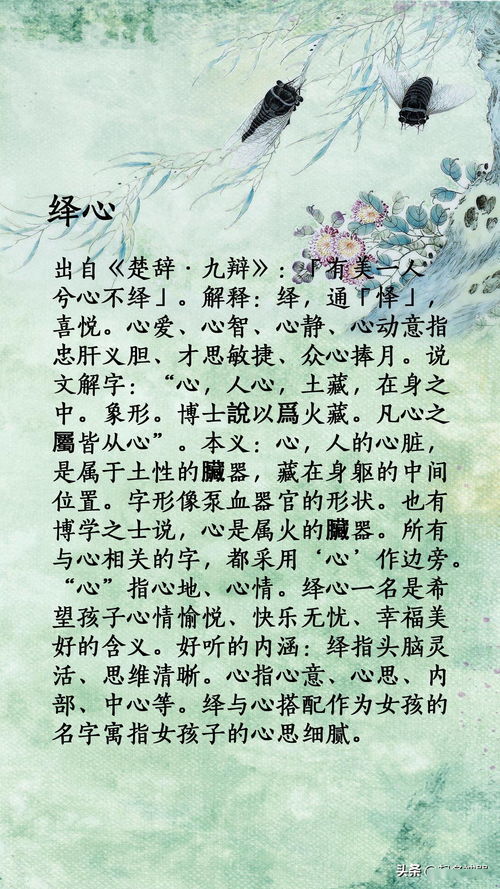 绎心
出自《楚辞·九辩》:「有美一人
兮心不绎」。解释:绎,通「怿」,
喜悦。心爱、心智、心静、心动意指
忠肝义胆、才思敏捷、众心捧月。说
文解字:“心,人心,土藏,在身之
中。象形。博士說以爲火藏。凡心之
屬皆从心”。本义:心,人的心脏,
是属于土性的臟器,藏在身躯的中间
位置。字形像泵血器官的形状。也有
博学之士说,心是属火的臟器。所有
与心相关的字,都采用‘心’作边旁。
“心”指心地、心情。绎心一名是希
望孩子心情愉悦、快乐无忧、幸福美
好的含义。好听的内涵:绎指头脑灵
活、思维清晰。心指心意、心思、内
部、中心等。绎与心搭配作为女孩的
名字寓指女孩子的心思细腻。
头条